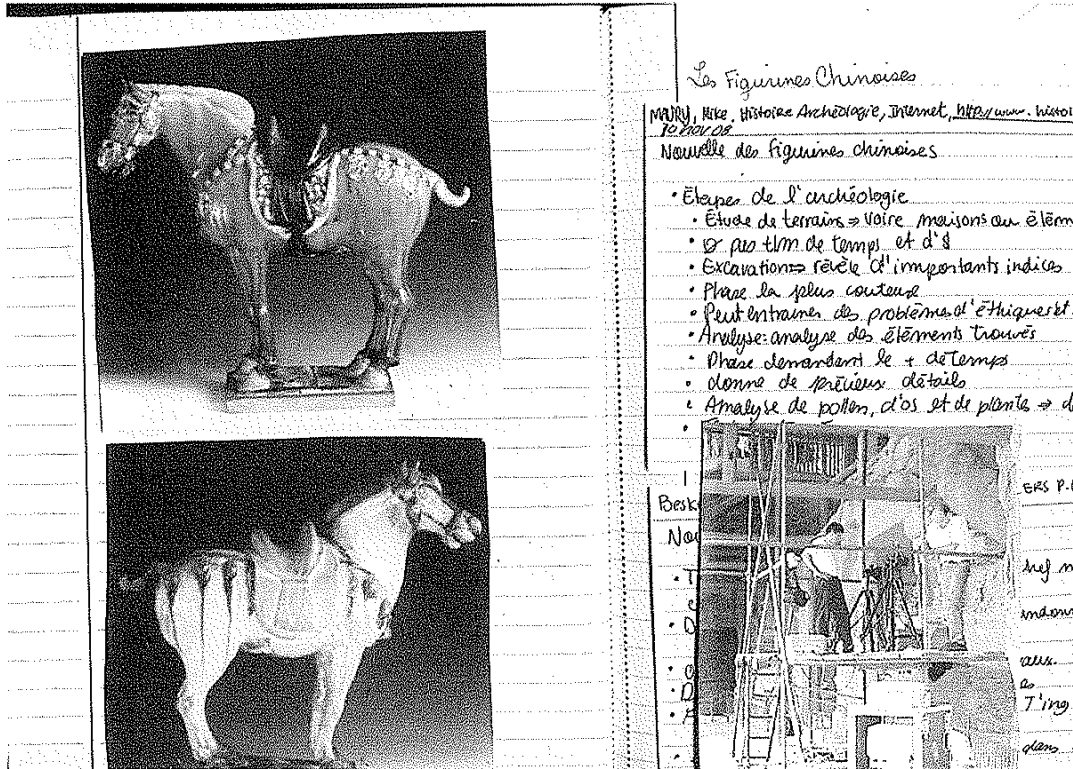 Les Figurines Chinoises
MAURY, Mike, Histoire Archéologie, Internet, http://www.histoi
10 nov 08
Nouvelle des figurines chinoises
• Étapes de l'archéologie
• Étude de terrains => voire maisons ou élém
• pas tlm de temps et d'$
• Excavation => révèle d'importants indices
• Phase la plus couteuse
• Peut entrainer des problèmes d'éthique et
• Analyse: analyse des éléments trouvés
• Phase demandant le + de temps
• donne de précieux détails
• Analyse de pollen, d'os et de plantes => d
ERS P.
Besk
No
hef n
indon
aux.
es
T'ing
dans